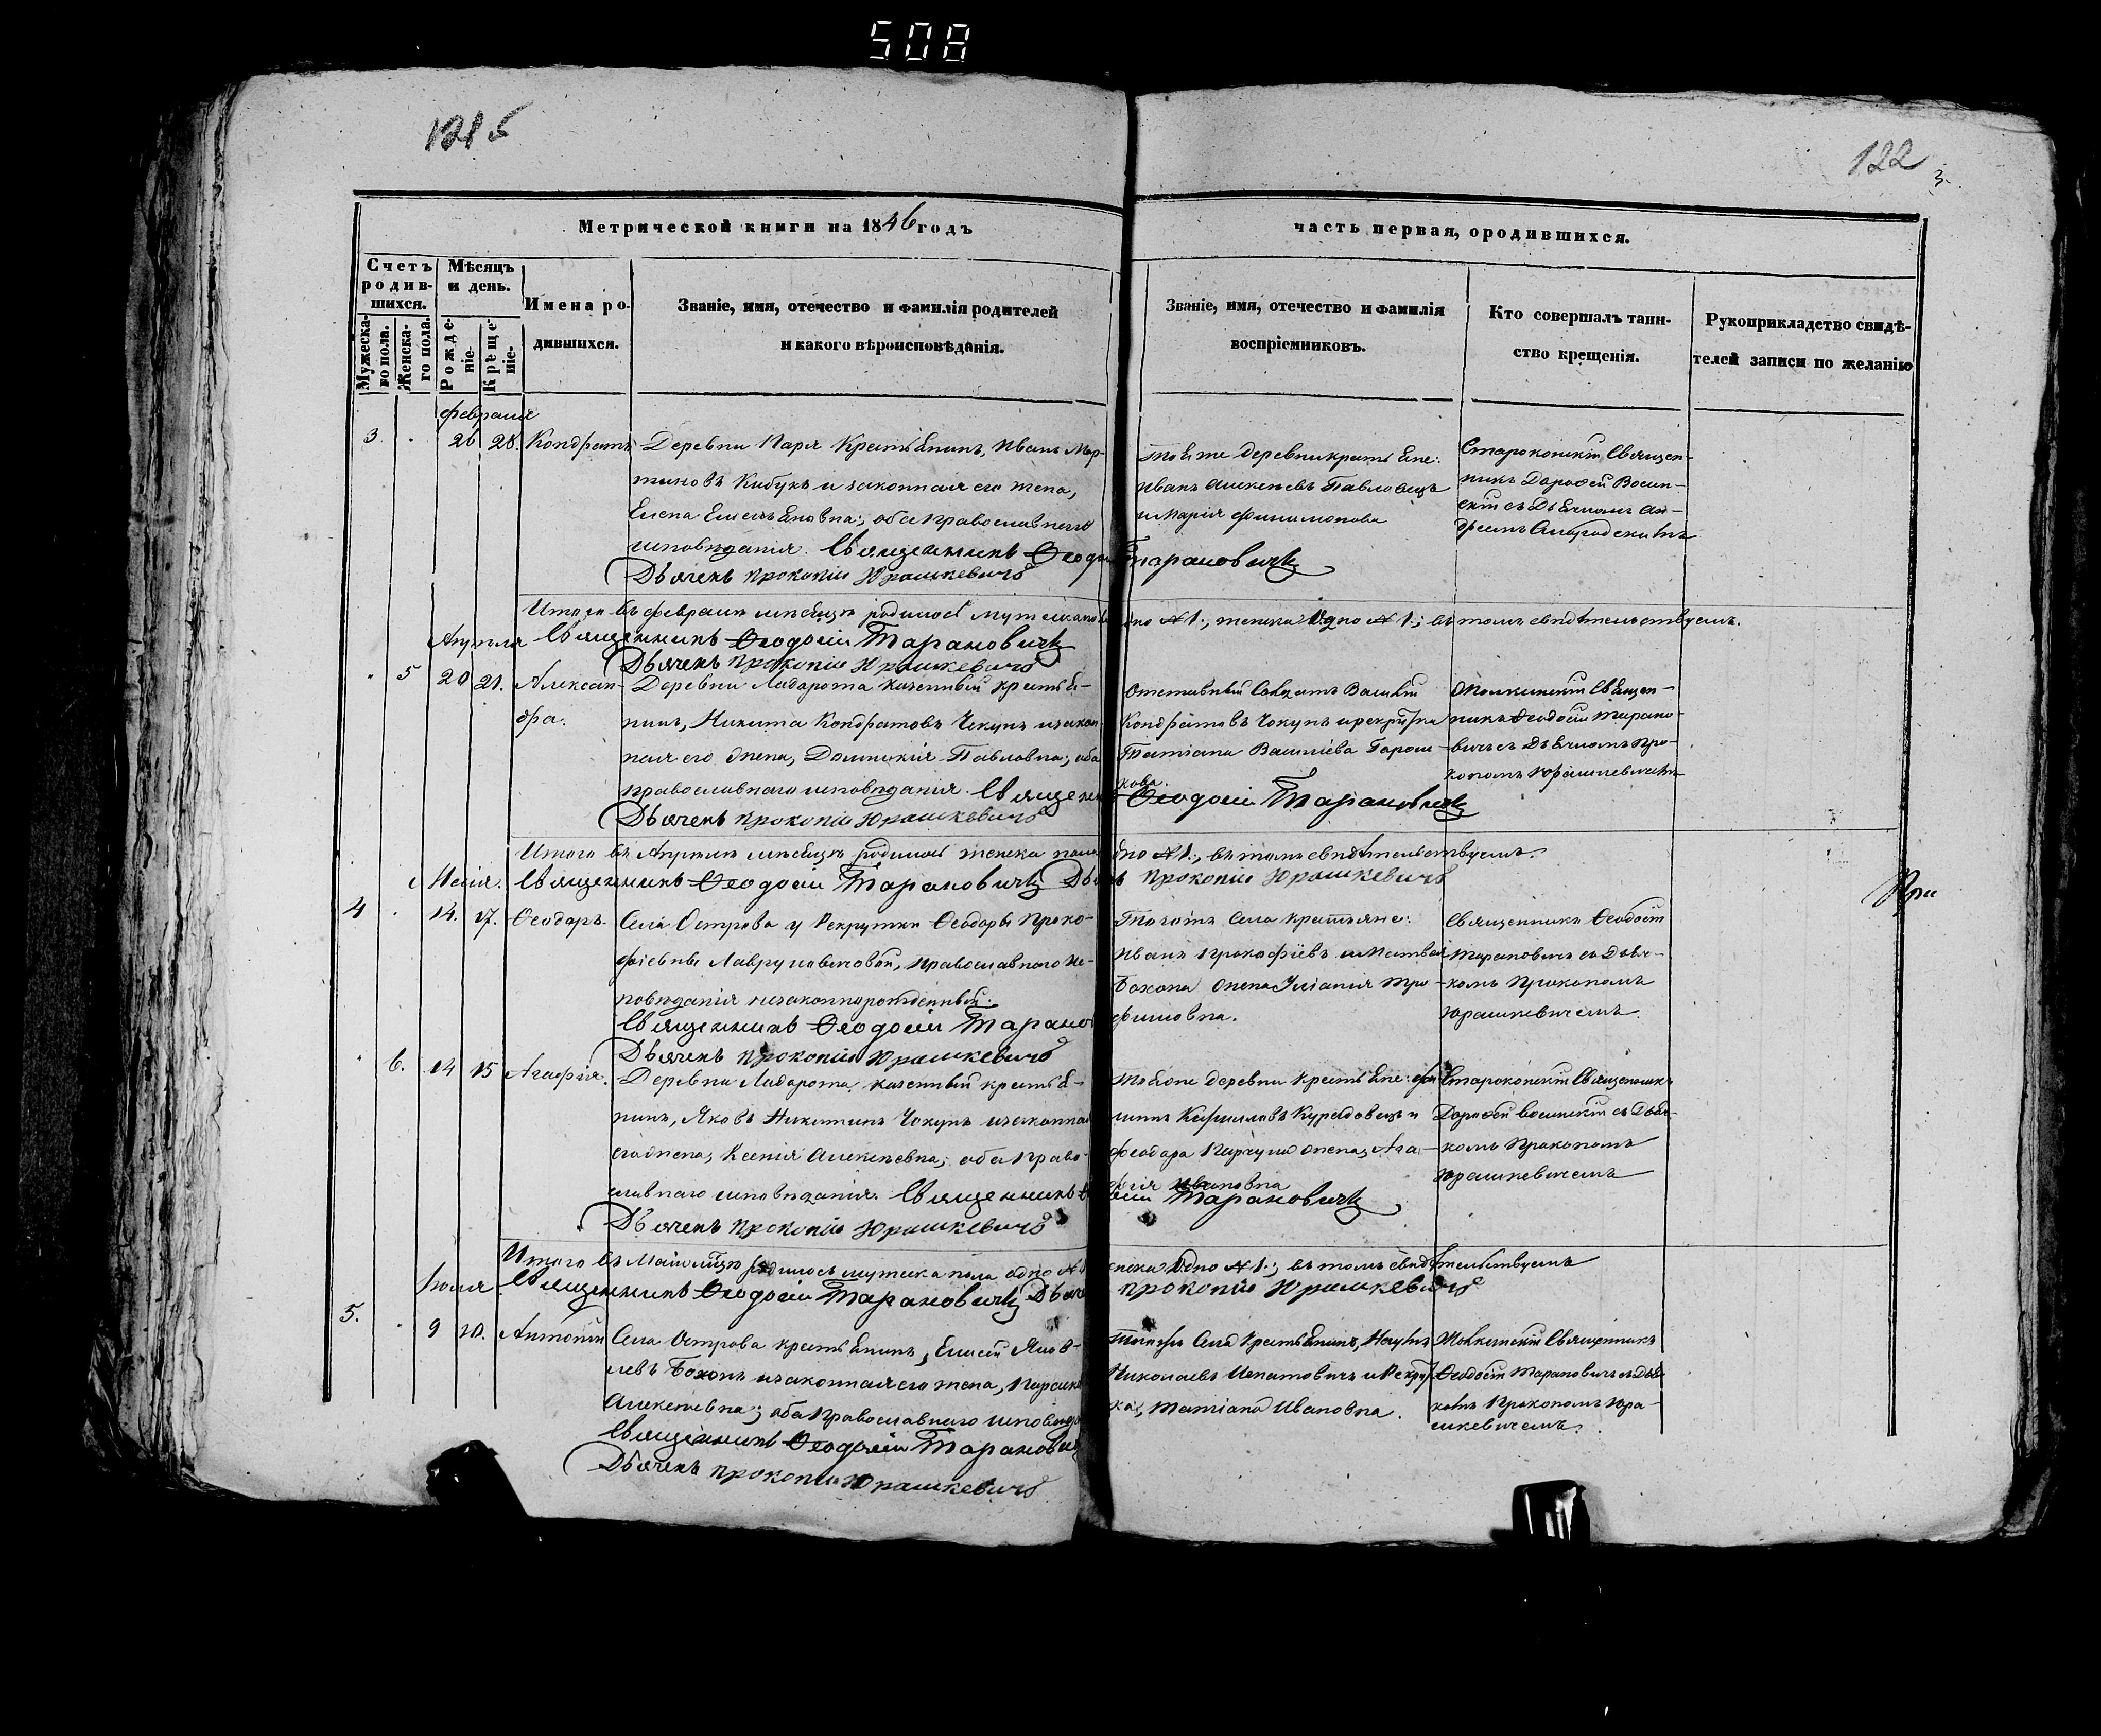 508
121 б
122
3.
Метрической книги на 1846 годъ
часть первая, ородившихся.
Счетъ родив-шихся.
Мужеска-го пола.
Женска-го пола.
Мѣсяцъ и день.
Рожде-ніе.
Креще-ніе.
Имена ро-
дившихся.
Званіе, имя, отечество и фамилія родителей
и какого вѣроисповѣданія.
Званіе, имя, отечество и фамилія
воспріемниковъ.
Кто совершалъ таин-
ство крещенія.
Рукоприкладство свидѣ-
телей записи по желанію
февраля
3. . 26 28. Кондратъ
Деревни Паря Крестьянинъ, Иванъ Мар-
тиновъ Кибукъ и законная его жена,
Елена Емельяновна; оба православнаго
исповѣданія. Священникъ Ѳеодосій Тарановичъ
Дьячекъ Прокопій Юрашкевичъ
тоѣже деревни крестьяне:
Иванъ Алексѣевъ Павловецъ
и Марія Филимонова
Священ-
никъ Дороѳей
съ Дьячкомъ Ан-
Итого въ февралѣ мѣсяцѣ родилось мужеска одно №1., женска одно №1.; въ томъ свидѣтельствуемъ.
Апрѣля
Священникъ Ѳеодосій Тарановичъ
Дьячекъ Прокопій Юрашкевичъ
. 5 20 21. Алексан-
дра.
Деревни Ладорожа казенный крестья-
нинъ, Никита Кондратовъ Чокунъ изакон-
ная его жена, Павловна; оба
православнаго исповѣданія. Священникъ Ѳеодосій Тарановичъ
Дьячекъ Прокопій Юрашкевичъ
Отставный Солдатъ Василій
Кондратовъ Чокунъ ирекрутка
Татіана Василіева
кова.
Священ-
никъ Ѳеодосій Тарано-
вичъ съ Дьячкомъ Про-
копомъ Юрашкевичемъ
Итого въ Апрѣлѣ мѣсяцѣ родилось женска пола одно №1., въ томъ свидѣтельствуемъ.
Маія.
Священникъ Ѳеодосій Тарановичъ Дьячекъ Прокопій Юрашкевичъ
При
4 . 14. 17. Ѳеодоръ.
Села Острова у Рекрутки Ѳеодоры Проко-
фіевны православнаго ис-
повѣданія незаконнорожденный.
Священникъ Ѳеодосій Тарановичъ
Дьячекъ Прокопій Юрашкевичъ
Тогожъ Села крестьяне:
Иванъ Прокофіевъ и Матвея
Бохона жена Уліанія Тро-
фимовна.
Священникъ Ѳеодосій
Тарановичъ съ Дьяч-
комъ Прокопомъ
Юрашкевичемъ.
. 6. 14 15 Агафія.
Деревни Ладорожа, казенный крестья-
нинъ, Яковъ Никитинъ Чокунъ изаконная
егожена, Ксенія Алексѣевна; оба право-
славнаго исповѣданія. Священникъ Ѳеодосій Тарановичъ
Дьячекъ Прокопій Юрашкевичъ
деревни крестьяне:
и
Ѳеодора жена, Ага-
фія Ивановна
Священникъ
Дороѳей съ Дьяч-
комъ Прокопомъ
Юрашкевичемъ
Итого въ Маіи мѣсяцѣ родилось мужеска пола одно №1 женска одно №1.; въ томъ свидѣтельствуемъ
Священникъ Ѳеодосій Тарановичъ Дьячекъ Прокопій Юрашкевичъ
5. . 9 10. Антоній
Села Острова крестьянинъ, Елисей Яков-
левъ Бохонъ изаконная его жена,
Алексѣевна; оба православнаго исповѣд
Священникъ Ѳеодосій Тарановичъ
Дьячекъ Прокопій Юрашкевичъ
Тогожъ Села Крестьянинъ,
Николаевъ Игнатовичъ и Рекрут
ка, Татіана Ивановна.
Священникъ
Ѳеодосій Тарановичъ съ Дьяч
комъ Прокопомъ Юра-
шкевичемъ.